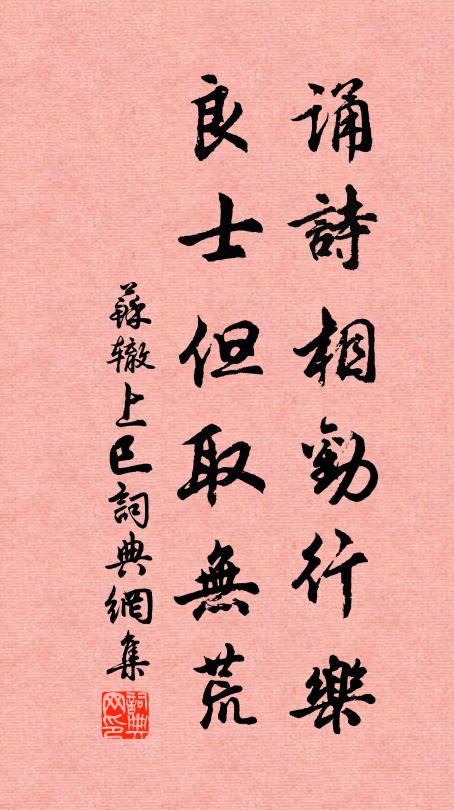 誦詩相勸行樂
良士但取無荒
蘇辙上巳詞典網集
詞典网印